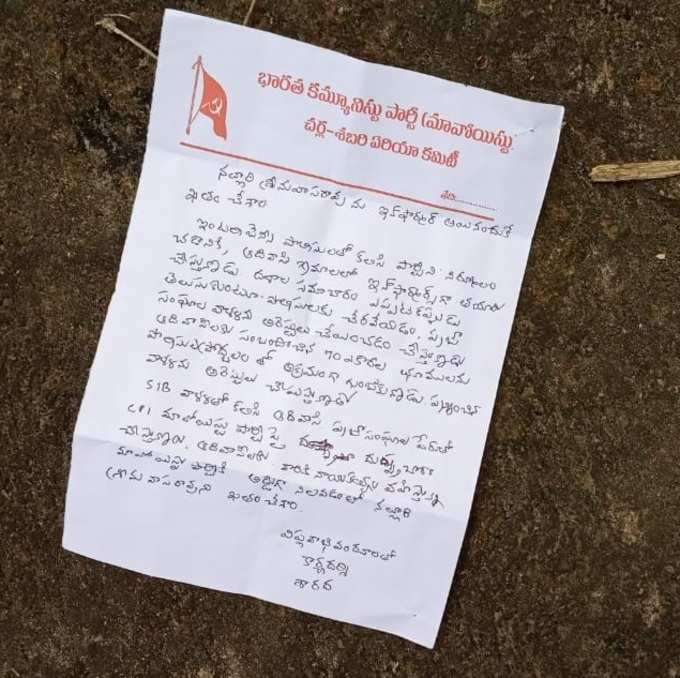 భారత కమ్యూనిస్టు పార్టీ (మావోయిస్టు
చర్ల-శబరి ఏరియా కమిటీ
తేది:............
నల్లారి శ్రీనివాసరావు ను ఇన్ఫార్మర్ అయినందుకే
ఖతం చేశాం
పోలీసులతో కలిసి పార్టీని నిర్మూలం
ఆదివాసి గ్రామాలలో ఇన్ఫార్మర్స్‌గా తయారు
చేస్తున్నాడు. దళాల సమాచారం ఎప్పటికప్పుడు
తెలుసుకుంటూ పోలీసులకు చేరవేయడం, ప్రజా
సంఘాల వాళ్లను అరెస్టులు చేయించడం చేస్తున్నాడు
ఆదివాసిలకు సంబంధించిన 70 ఎకరాల భూములను
అక్రమంగా గుంజుకున్నాడు
వాళ్లను అరెస్టులు చేయిస్తున్నాడు
SIB వాళ్లతో కలిసి ఆదివాసి ప్రజాసంఘాల పేరుతో
CPI మావోయిస్టు పార్టీ పై దుష్ప్రచారం
చేస్తున్నాడు. ఆదివాసిలకు, వారికి నాయకత్వం వహిస్తున్న
మావోయిస్టు పార్టీకి అడ్డుగా నిలవడంతో నల్లారి
శ్రీనివాసరావుని ఖతం చేశాం
విప్లవాభివందనాలతో
కార్యదర్శి
శారద